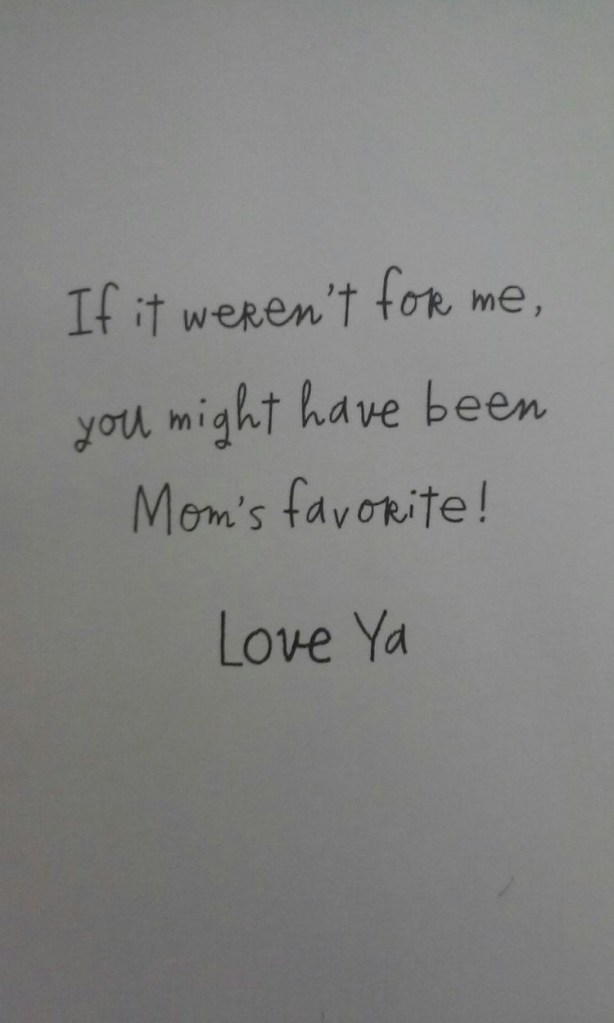 If it weren't for me,
you might have been
Mom's favorite!
Love Ya